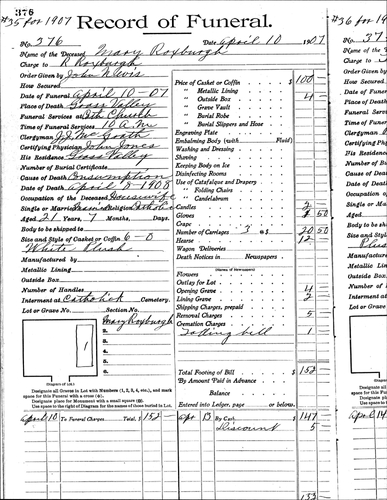 376
#35 for 1907 Record of Funeral. #36 for 19
No. 376 Date April 10 1907
Name of the Deceased Mary Roxburgh
Charge to R Roxburgh
Order Given by John
How Secured
Date of Funeral April 10-07
Place of Death Grass Valley
Funeral Services at Cath Church
Time of Funeral Services 10 A.M.
Clergyman J.J. McGrath
Certifying Physician John Jones
His Residence Grass Valley
Number of Burial Certificate
Cause of Death Consumption
Date of Death April 8 1908
Occupation of the Deceased Housewife
Single or Married Married Religion Catholic
Aged 21 Years, 7 Months, Days.
Body to be shipped to
Size and Style of Casket or Coffin 6-0
White Plush
Manufactured by
Metallic Lining
Outside Box
Number of Handles
Interment at Catholick Cemetery.
Lot or Grave No. Section No.
1 Mary Roxburgh
1.
2.
3.
4.
5.
6.
(Diagram of Lot.)
Designate all Graves in Lot with Numbers (1, 2, 3, 4, etc.), and mark
space for this Funeral with a cross (+).
Designate place for Monument with a small square (□).
Use space to right of Diagram for the names of those buried in Lot.
Price of Casket or Coffin $ 100
" Metallic Lining
" Outside Box 4
" Grave Vault
" Burial Robe
" Burial Slippers and Hose
Engraving Plate
Embalming Body (with Fluid)
Washing and Dressing
Shaving
Keeping Body on Ice
Disinfecting Rooms
Use of Catafalque and Drapery
" Folding Chairs
" Candelabrum
Candles 2
Gloves $ 2 50
Crape
Number of Carriages 3 @ $ 20 50
Hearse 12
Wagon Deliveries
Death Notices in Newspapers
(Names of Newspapers)
Flowers
Outlay for Lot
Opening Grave 4
Lining Grave 2
Shipping Charges, prepaid
Removal Charges 5
Cremation Charges
Tolling bell 1
Total Footing of Bill $ 152
By Amount Paid in Advance
Balance
Entered into Ledger, page or below.
April 10 To Funeral Charges Total, $ 152 Apr 13 By Cash $ 147
Discount 5